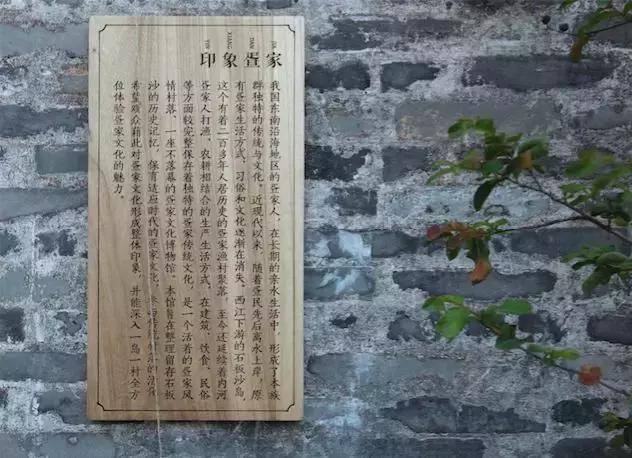 YIN XIANG DAN JIA
印象疍家
我国东南沿海地区的疍家人，在长期的亲水生活中，形成了本族
群独特的传统与文化。近现代以来，随着疍民先后离水上岸，原
有疍家生活方式、习俗和文化逐渐在消失。西江下游的石板沙岛，
这个有着二百多年人居历史的疍家渔村聚落，至今还延续着内河
疍家人打渔、农耕相结合的生产生活方式，在建筑、饮食、民俗
等方面较完整保存着独特的疍家传统文化，是一个活着的疍家风
情村落，一座不落幕的疍家文化博物馆。本馆旨在整理留存石板
沙的历史记忆，保育适应时代的疍家文化，
希望观众藉此对疍家文化形成整体印象，并能深入一岛一村全方
位体验疍家文化的魅力。